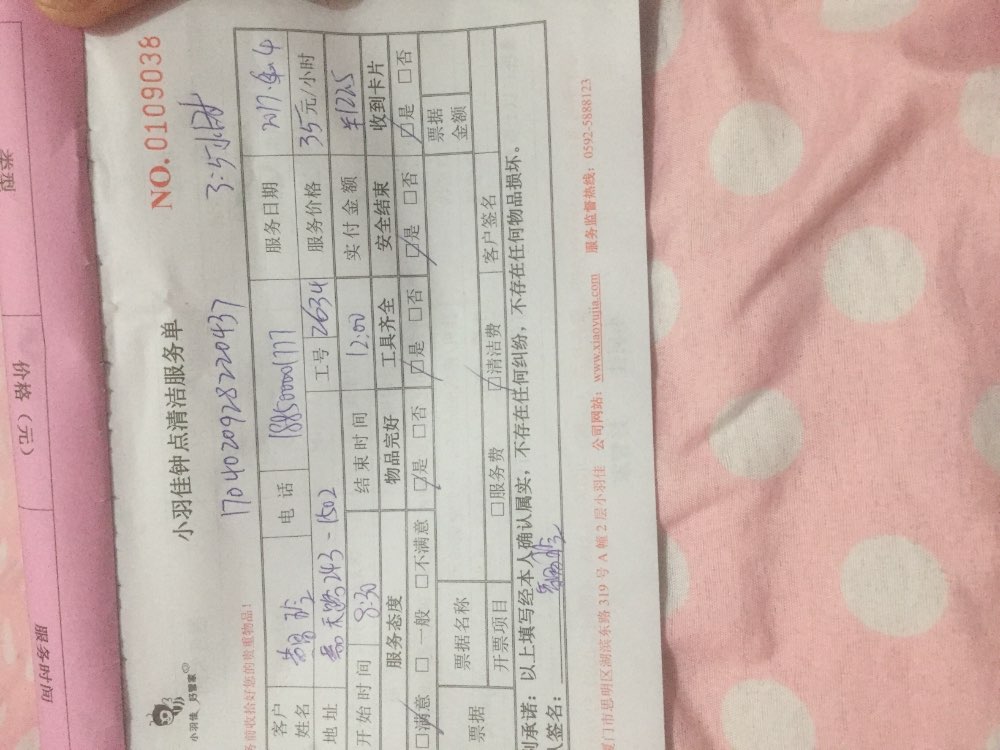 票据
价格（元）
服务时间
小羽佳 好管家
小羽佳钟点清洁服务单
NO.0109038
务前收拾好您的贵重物品！
17040209282220437
3.5小时
客户姓名
电话 18850001777
服务日期 2017.4.4
地址 243-1502
工号 2634
服务价格 35元/小时
开始时间 8:30
结束时间 12:00
实付金额 ¥122.5
服务态度 物品完好 工具齐全 安全结束 收到卡片
□满意 □一般 □不满意 □是 □否 □是 □否 □是 □否 □是 □否
票据 票据名称 票据金额
开票项目 □服务费 □清洁费 客户签名
承诺：以上填写经本人确认属实，不存在任何纠纷，不存在任何物品损坏。
人签名：
厦门市思明区湖滨东路319号A幢2层小羽佳 公司网站：www.xiaoyujia.com 服务监督热线：0592-5888123